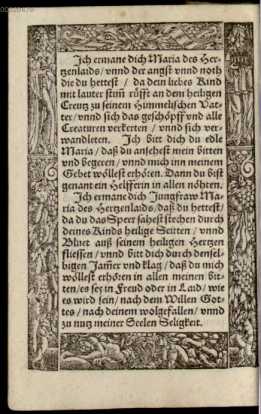 Ich ermane dich Maria des Her-
tzenlaids / vnnd der angst vnnd noth
die du hettest / da dein liebes Kind
mit lauter stim̄ rüfft an dem heiligen
Creutz zu seinem Himmelischen Vat-
ter / vnnd sich das geschöpff vnd alle
Creaturen verkerten / vnnd sich ver-
wandleten. Ich bitt dich du edle
Maria / daß du ansehest mein bitten
vnd begeren / vnnd mich inn meinem
Gebet wöllest erhören. Dann du bist
genant ein Helfferin in allen nöhten.
Ich ermane dich Jungfraw Ma-
ria des Hertzenlaids, daß du hettest /
da du das Sper sahest stechen durch
deines Kinds heilige Seitten / vnnd
Bluet auß seinem heiligen Hertzen
fliessen / vnnd bitt dich durch densel-
bigen Jam̄er vnd klag / daß du mich
wöllest erhören in allen meinen bit-
ten / es sey in Freud oder in Laid / wie
es wird sein / nach dem Willen Got-
tes / nach deinem wolgefallen / vnnd
zu nutz meiner Seelen Seligkeit.